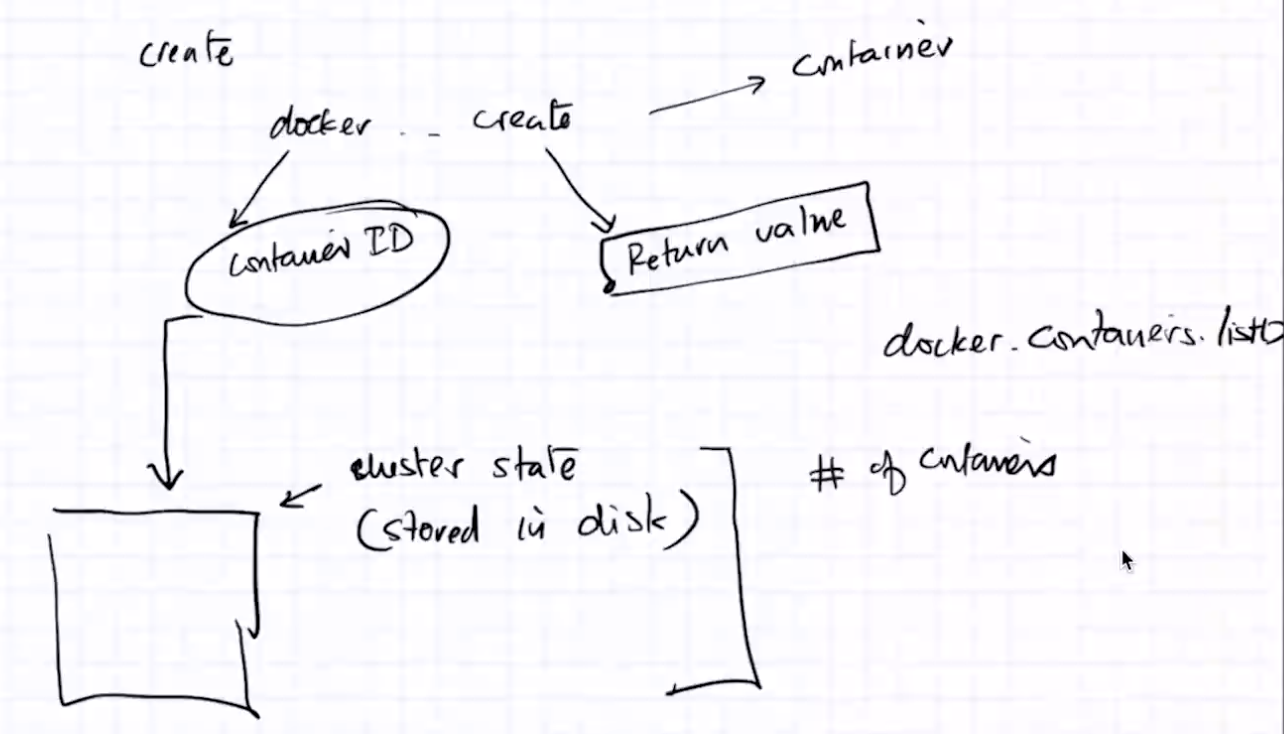 create
container
docker -- create
container ID
Return value
docker.containers.list()
cluster state
(stored in disk)
# of containers